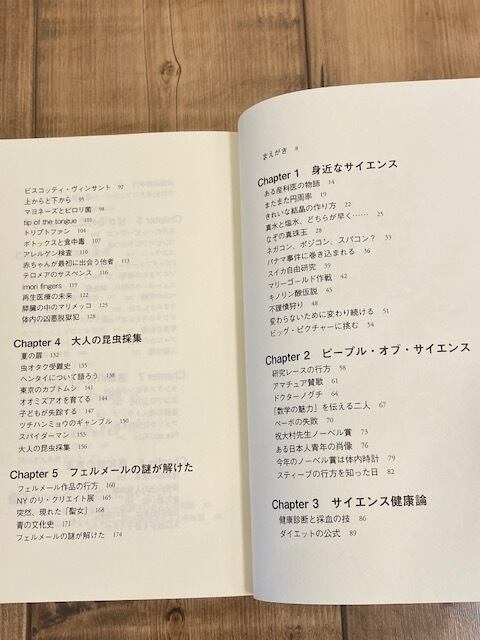 まえがき 8
Chapter 1 身近なサイエンス
ある産科医の物語 14
またまた円周率 19
きれいな結晶の作り方 22
真水と塩水、どちらが早く…… 25
なぞの真珠玉 28
ネガコン、ポジコン、スパコン? 33
パナマ事件に巻き込まれる 36
スイカ自由研究 39
マリーゴールド作戦 42
キノリン酸仮説 45
不謹慎狩り 48
変わらないために変わり続ける 51
ビッグ・ピクチャーに挑む 54
Chapter 2 ピープル・オブ・サイエンス
研究レースの行方 58
アマチュア賛歌 61
ドクターノグチ 64
「数学の魅力」を伝える二人 67
ペーボの失敗 70
祝大村先生ノーベル賞 73
ある日本人青年の肖像 76
今年のノーベル賞は体内時計 79
スティーブの行方を知った日 82
Chapter 3 サイエンス健康論
健康診断と採血の技 86
ダイエットの公式 89
ビスコッティ・ヴィンサント 92
上からと下から 95
マヨネーズとピロリ菌 98
tip of the tongue 101
トリプトファン 104
ボトックスと食中毒 107
アレルゲン検査 110
赤ちゃんが最初に出会う他者 113
テロメアのサスペンス 116
imori fingers 119
再生医療の未来 122
膵臓の中のマリメッコ 125
体内の凶悪脱獄犯 128
Chapter 4 大人の昆虫採集
夏の扉 132
虫オタク受難史 135
ヘンタイについて語ろう 138
東京のカブトムシ 141
オオミズアオを育てる 144
子どもが失踪する 147
ツチハンミョウのギャンブル 150
スパイダーマン 153
大人の昆虫採集 156
Chapter 5 フェルメールの謎が解けた
フェルメール作品の行方 160
NYのリ・クリエイト展 165
突然、現れた「聖女」 168
青の文化史 171
フェルメールの謎が解けた 174